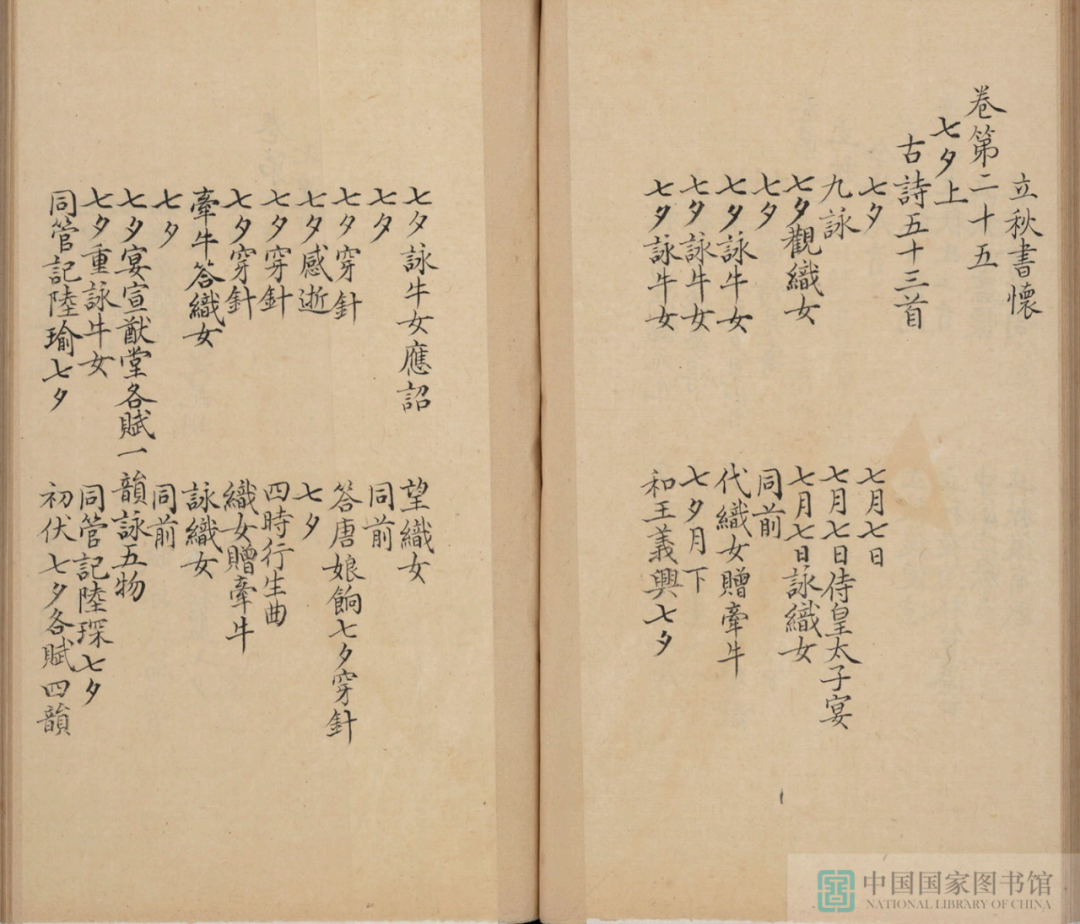 立秋書懷
卷第二十五
七夕上
古詩五十三首
七夕 七月七日
九詠 七月七日侍皇太子宴
七夕觀織女 七月七日詠織女
七夕 同前
七夕詠牛女 代織女贈牽牛
七夕詠牛女 七夕月下
七夕詠牛女 和王義興七夕
七夕詠牛女應詔 望織女
七夕 同前
七夕穿針 答唐娘餉七夕穿針
七夕感逝 七夕
七夕穿針 四時行生曲
七夕穿針 織女贈牽牛
牽牛答織女 詠織女
七夕 同前
七夕宴宣猷堂各賦一韻詠五物
七夕重詠牛女 同管記陸琛七夕
同管記陸瑜七夕 初伏七夕各賦四韻
中国国家图书馆
NATIONAL LIBRARY OF CHINA